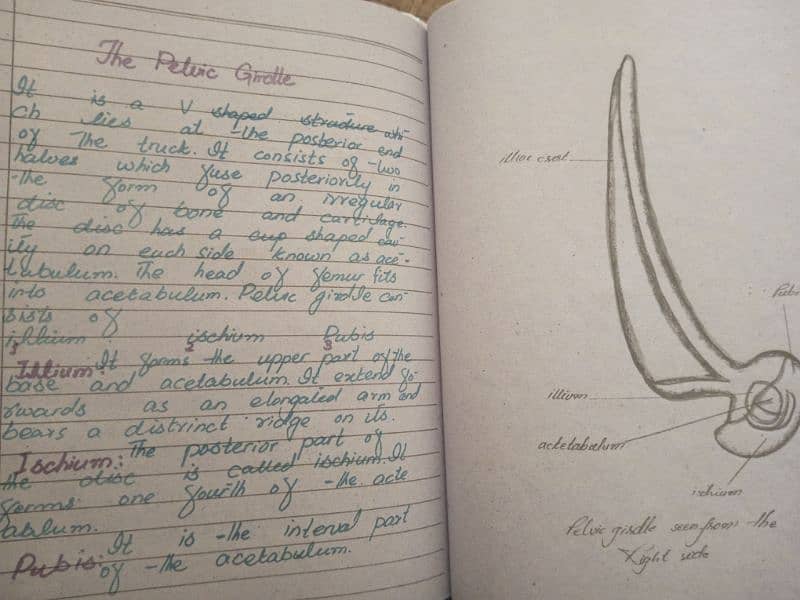 The Pelvic Girdle
It is a V shaped structure whi
ch lies at the posterior end
of The truck. It consists of two
halves which fuse posteriorily in
the form of an irregular
disc of bone and cartilage.
The disc has a cup shaped cav
ity on each side known as ace-
tabulum. The head of femur fits
into acetabulum. Pelvic girdle con
sists of
1 2 ischium 3 Pubis
Illium: It forms the upper part of the
base and acetabulum. It extend fo
rwards as an elongated arm and
bears a distrinct ridge on its.
Ischium: The posterior part of
the disc is called ischium. It
forms one fourth of the acte
ablum.
Pubis: It is the interval part
of the acetabulum.
illiac crest
Pubi
illium
actetabulum
ischium
Pelvic girdle seen from the
right side